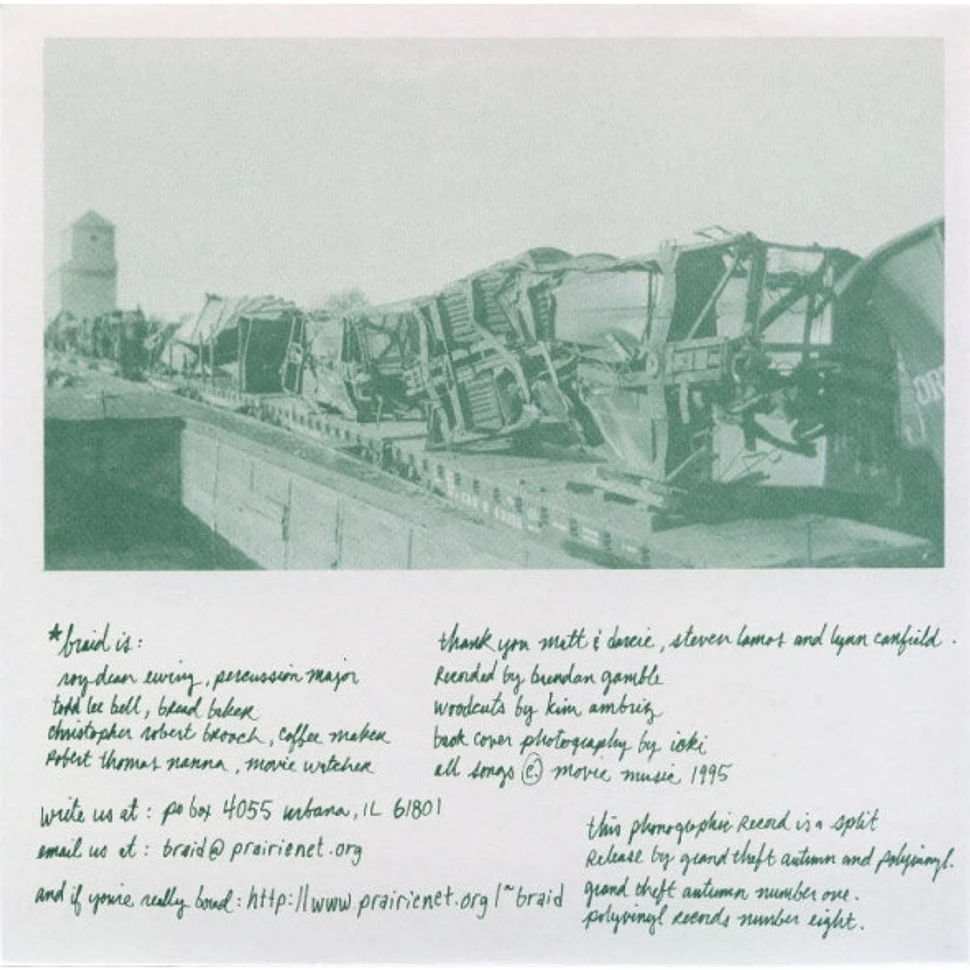 *braid is:
roy dean ewing, percussion major
todd lee bell, bread baker
christopher robert broach, coffee maker
Robert thomas nanna, movie watcher
write us at: po box 4055 urbana, IL 61801
email us at: braid@prairienet.org
and if you're really bored: http://www.prairienet.org/~braid
thank you matt & darcie, steven lamos and lynn canfield.
Recorded by brendan gamble
woodcuts by kim ambriz
back cover photography by
all songs © movie music 1995
this phonographic Record is a split
Release by grand theft autumn and polyvinyl.
grand theft autumn number one.
polyvinyl records number eight.
OR